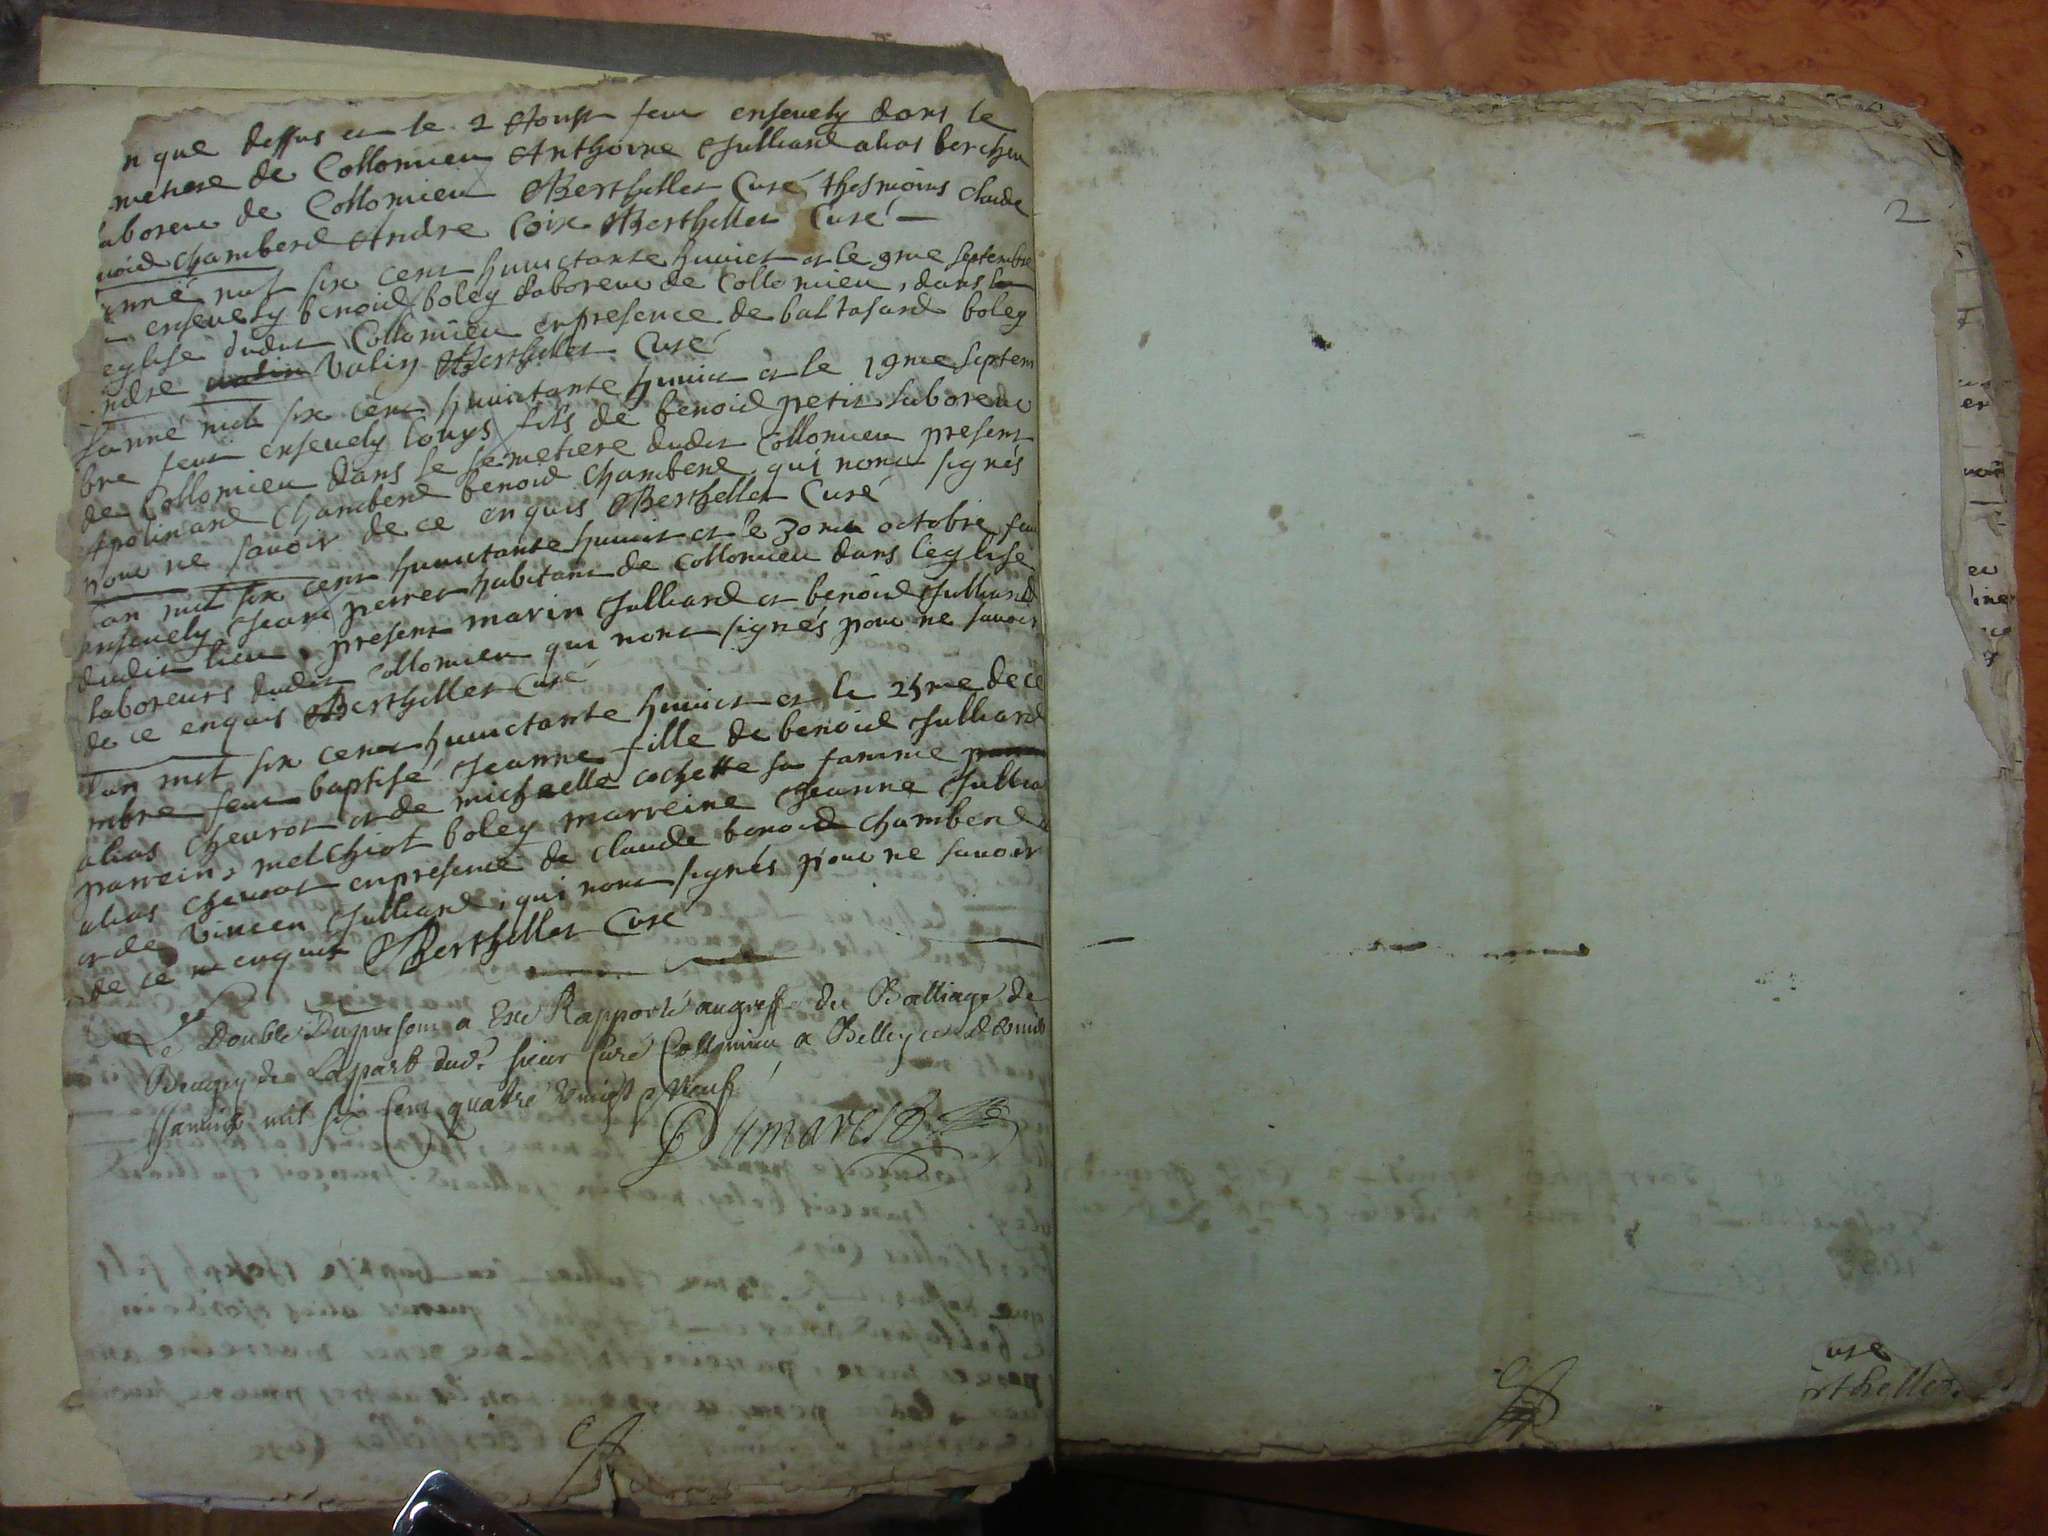 n que dessus et le 2 Aoust feut ensevely dans le
metiere de Collomieu Anthoine Julliard alias berchu
laboreur de Collomieu Berthellet Curé thesmoins claude
noid chamberd Andre Coix Berthellet Curé
anné mil six cent huictante huict et le 9me septembre
ensevely benoid boley laboreur de Collomieu, dans l
eglise dudit Collomieu enpresence de baltasard boley
ndre Valin Berthellet Curé
lanné mil six cent huictante huict et le 19me septem
bre feut ensevely Louys fils de benoid petit laboreur
de Collomieu dans le semetiere dudit Collomieu present
Apolinard Chamberd benoid Chamberd qui nont signés
pour ne savoir de ce enquis Berthellet Curé
lan mil six cent huictante huict et le 30me octobre feut
ensevely Jean perret habitant de Collomieu dans l'eglise
dudit lieu, present marin Julliard et benoid Julliard
laboreurs dudit Collomieu qui nont signés pour ne savoir
de ce enquis Berthellet Curé
lan mil six cent huictante huict et le 25me dece
mbre feut baptisé Jeanne fille de benoid Julliard
alias chevrot et de michaelle cochette sa famme
parrein, melchiot boley marreine Jeanne Jullia
alias chevrot enpresence de claude benoid chamberd
et de Vincen Julliard, qui nont signés pour ne savoir
de ce enquis Berthellet Curé
Le Double Du present a Esté Rapporté au greffe du Balliage de
Beugey de La part dud. sieur Curé Collomieu a Belley ce
Janvier mil six Cent quatre Vingt & Neuf
Dumarest
2
use
rthellet